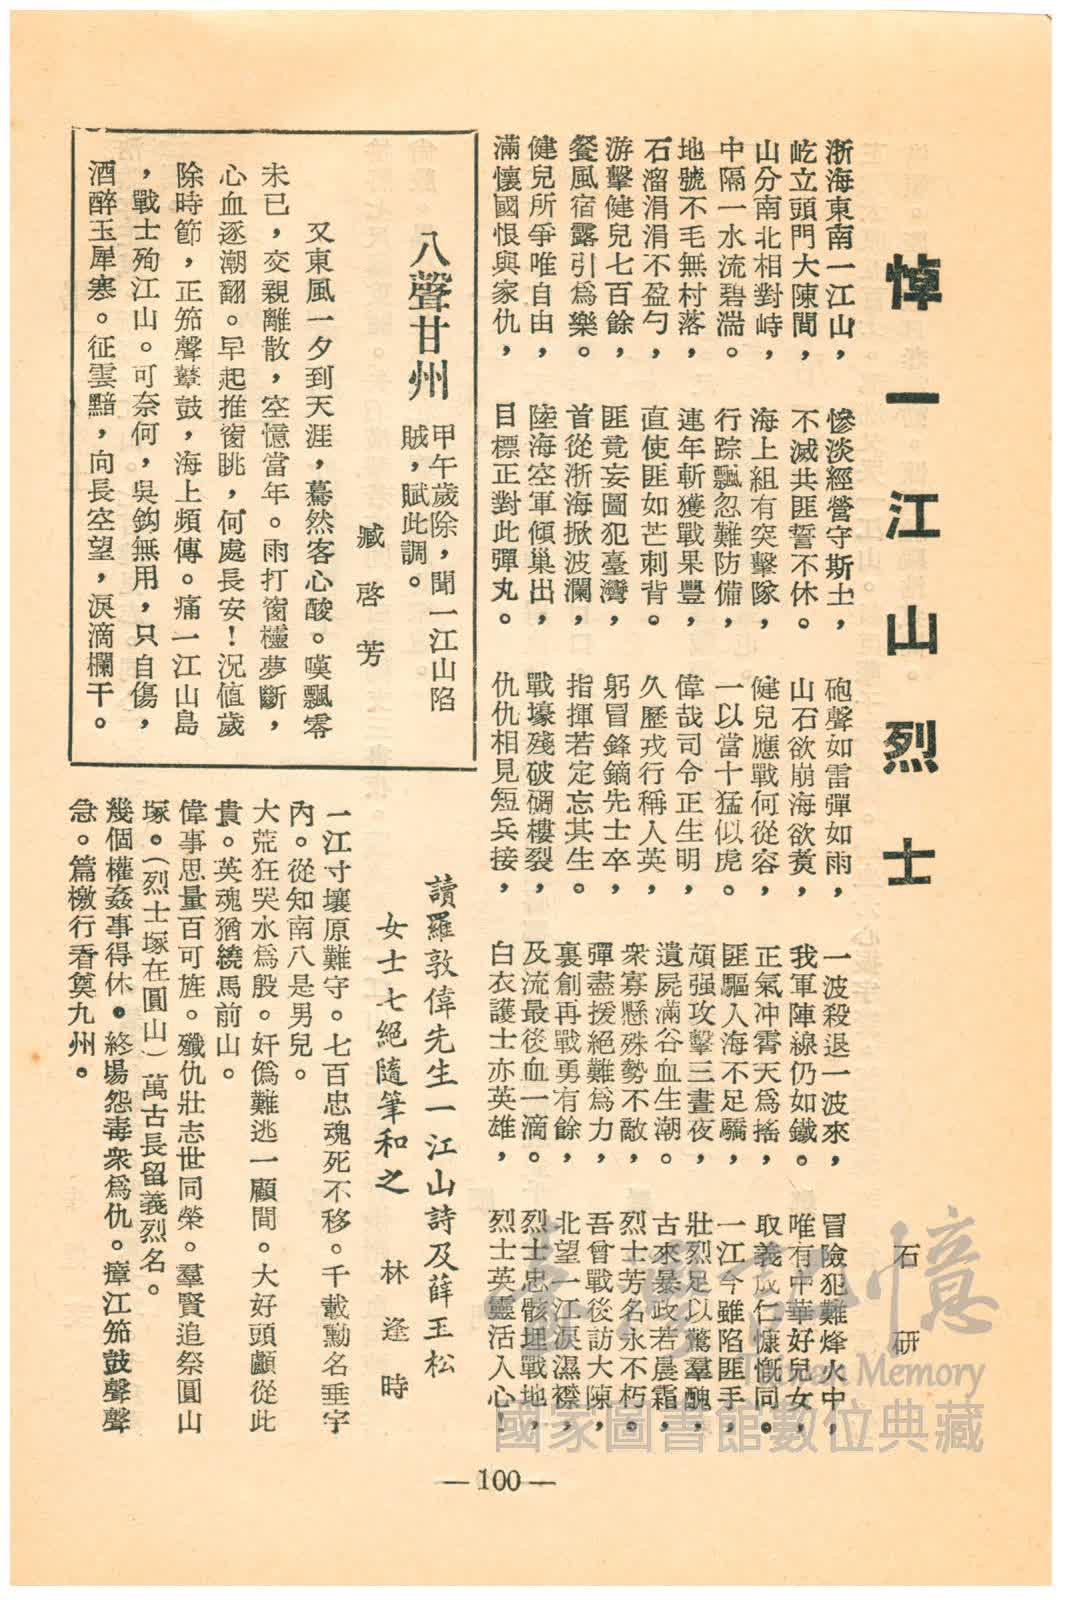 悼一江山烈士
石研
浙海東南一江山，
屹立頭門大陳間，
山分南北相對峙，
中隔一水流碧湍。
地號不毛無村落，
石溜涓涓不盈勺，
游擊健兒七百餘，
餐風宿露引爲樂。
健兒所爭唯自由，
滿懷國恨與家仇，
慘淡經營守斯土，
不滅共匪誓不休。
海上組有突擊隊，
行踪飄忽難防備，
連年斬獲戰果豐，
直使匪如芒刺背。
匪竟妄圖犯臺灣，
首從浙海掀波瀾，
陸海空軍傾巢出，
目標正對此彈丸。
砲聲如雷彈如雨，
山石欲崩海欲煑，
健兒應戰何從容，
一以當十猛似虎。
偉哉司令正生明，
久歷戎行稱人英，
躬冒鋒鏑先士卒，
指揮若定忘其生。
戰壕殘破碉樓裂，
仇仇相見短兵接，
一波殺退一波來，
我軍陣線仍如鐵。
正氣冲霄天爲搖，
匪驅人海不足驕，
頑强攻擊三晝夜，
遺屍滿谷血生潮。
衆寡懸殊勢不敵，
彈盡援絕難爲力，
裹創再戰勇有餘，
及流最後血一滴。
白衣護士亦英雄，
冒險犯難烽火中，
唯有中華好兒女，
取義成仁慷慨同。
一江今雖陷匪手，
壯烈足以驚羣醜，
古來暴政若晨霜，
烈士芳名永不朽。
吾曾戰後訪大陳，
北望一江淚濕襟，
烈士忠骸埋戰地，
烈士英靈活人心！
八聲甘州
甲午歲除，聞一江山陷
賊，賦此調。
臧啓芳
又東風一夕到天涯，驀然客心酸。嘆飄零
未已，交親離散，空憶當年。雨打窗櫺夢斷，
心血逐潮翻。早起推窗眺，何處長安！況值歲
除時節，正笳聲鼙鼓，海上頻傳。痛一江山島
，戰士殉江山。可奈何，吳鈎無用，只自傷，
酒醉玉犀寒。征雲黯，向長空望，淚滴欄干。
讀羅敦偉先生一江山詩及薛玉松
女士七絕隨筆和之　林逢時
一江寸壤原難守。七百忠魂死不移。千載勳名垂宇
內。從知南八是男兒。
大荒狂哭水爲殷。奸僞難逃一顧間。大好頭顱從此
貴。英魂猶繞馬前山。
偉事思量百可旌。殲仇壯志世同榮。羣賢追祭圓山
塚。(烈士塚在圓山)萬古長留義烈名。
幾個權姦事得休。終場怨毒衆爲仇。瘴江笳鼓聲聲
急。篇檄行看奠九州。
—100—
臺灣記憶
Taiwan Memory
國家圖書館數位典藏